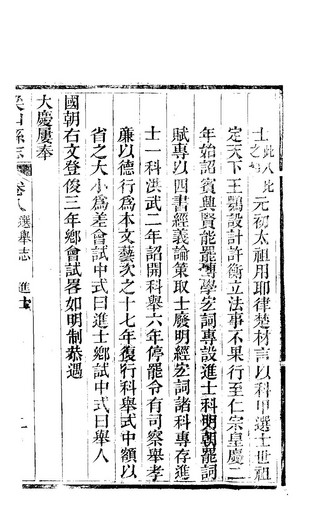 士之此八此元初太祖用耶律楚材言以科甲選士世祖
定天下王鶚設計許衡立法事不果行至仁宗皇慶二
年始詔賓興賢能罷傳學宏詞專設進士科明朝罷詞
賦專以四書經義論策取士廢明經宏詞諸科專存進
士一科洪武二年詔開科舉六年停罷令有司察舉孝
廉以德行爲本文藝次之十七年復行科舉式中額以
省之大小爲差會試中式曰進士鄉試中式曰舉人
國朝右文登俊三年鄉會試畧如明制恭遇
大慶屢奉
山縣志 卷八 選舉志 進士